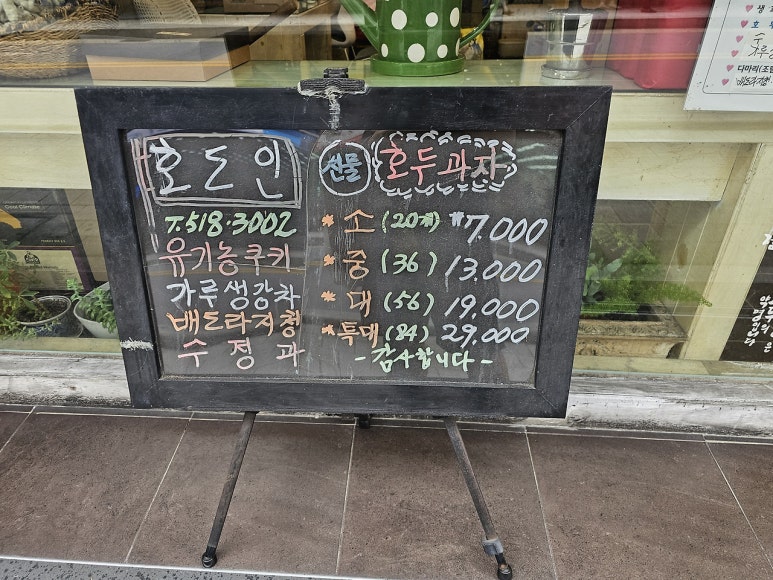 호도인
T.518.3002
유기농쿠키
가루생강차
배도라지청
수정과
선물 호두과자
* 소 (20개) ₩7,000
* 중 (36) 13,000
* 대 (56) 19,000
* 특대 (84) 29,000
- 감사합니다 -